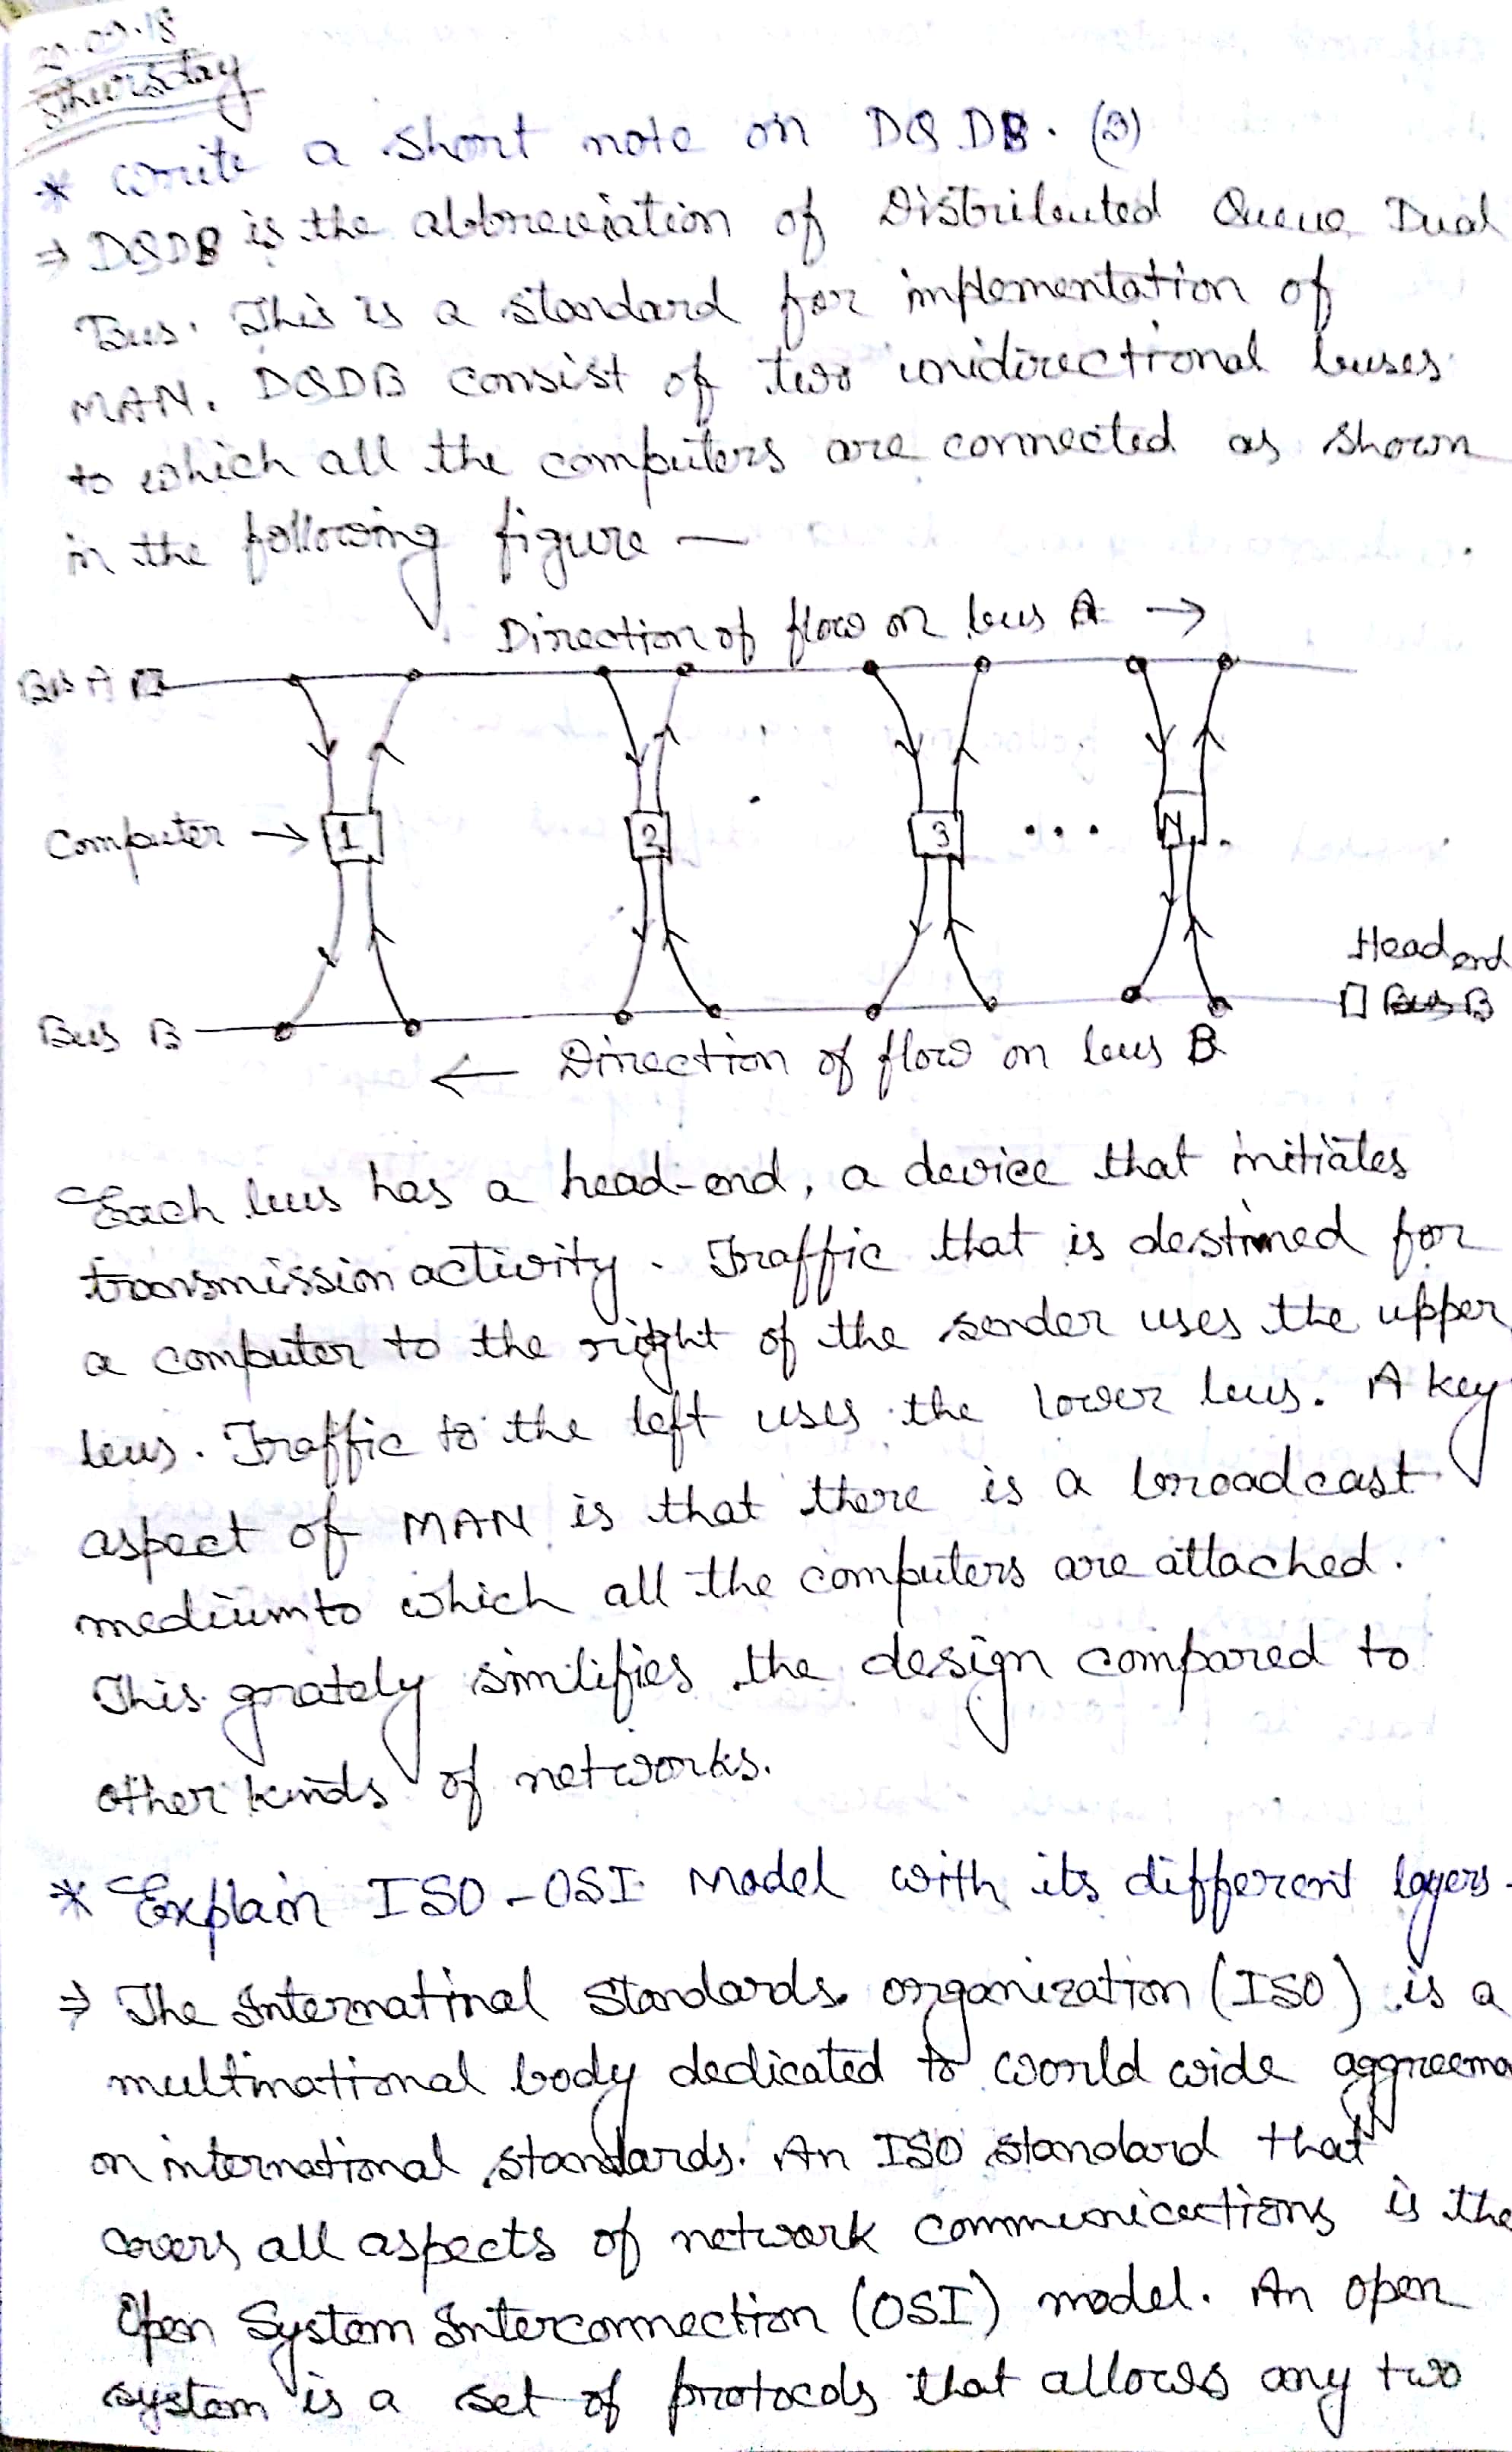 20.09.18
Thursday
* Write a short note on DQDB. (3)
⇒ DQDB is the abbreviation of Distributed Queue Dual
Bus. This is a standard for implementation of
MAN. DQDB consist of two unidirectional buses
to which all the computers are connected as shown
in the following figure —
Direction of flow on bus A →
Bus A
Computer → 1 2 3 ... N
Head end
Bus B
← Direction of flow on bus B
Each bus has a head-end, a device that initiates
transmission activity. Traffic that is destined for
a computer to the right of the sender uses the upper
bus. Traffic to the left uses the lower bus. A key
aspect of MAN is that there is a broadcast
medium to which all the computers are attached.
This grately simlifies the design compared to
other kinds of networks.
* Explain ISO-OSI Model with its different layers.
⇒ The Internatinal Standards organization (ISO) is a
multinational body dedicated to world wide aggreeme
on international standards. An ISO standard that
covers all aspects of network communications is the
Open System Interconnection (OSI) model. An open
system is a set of protocols that allows any two